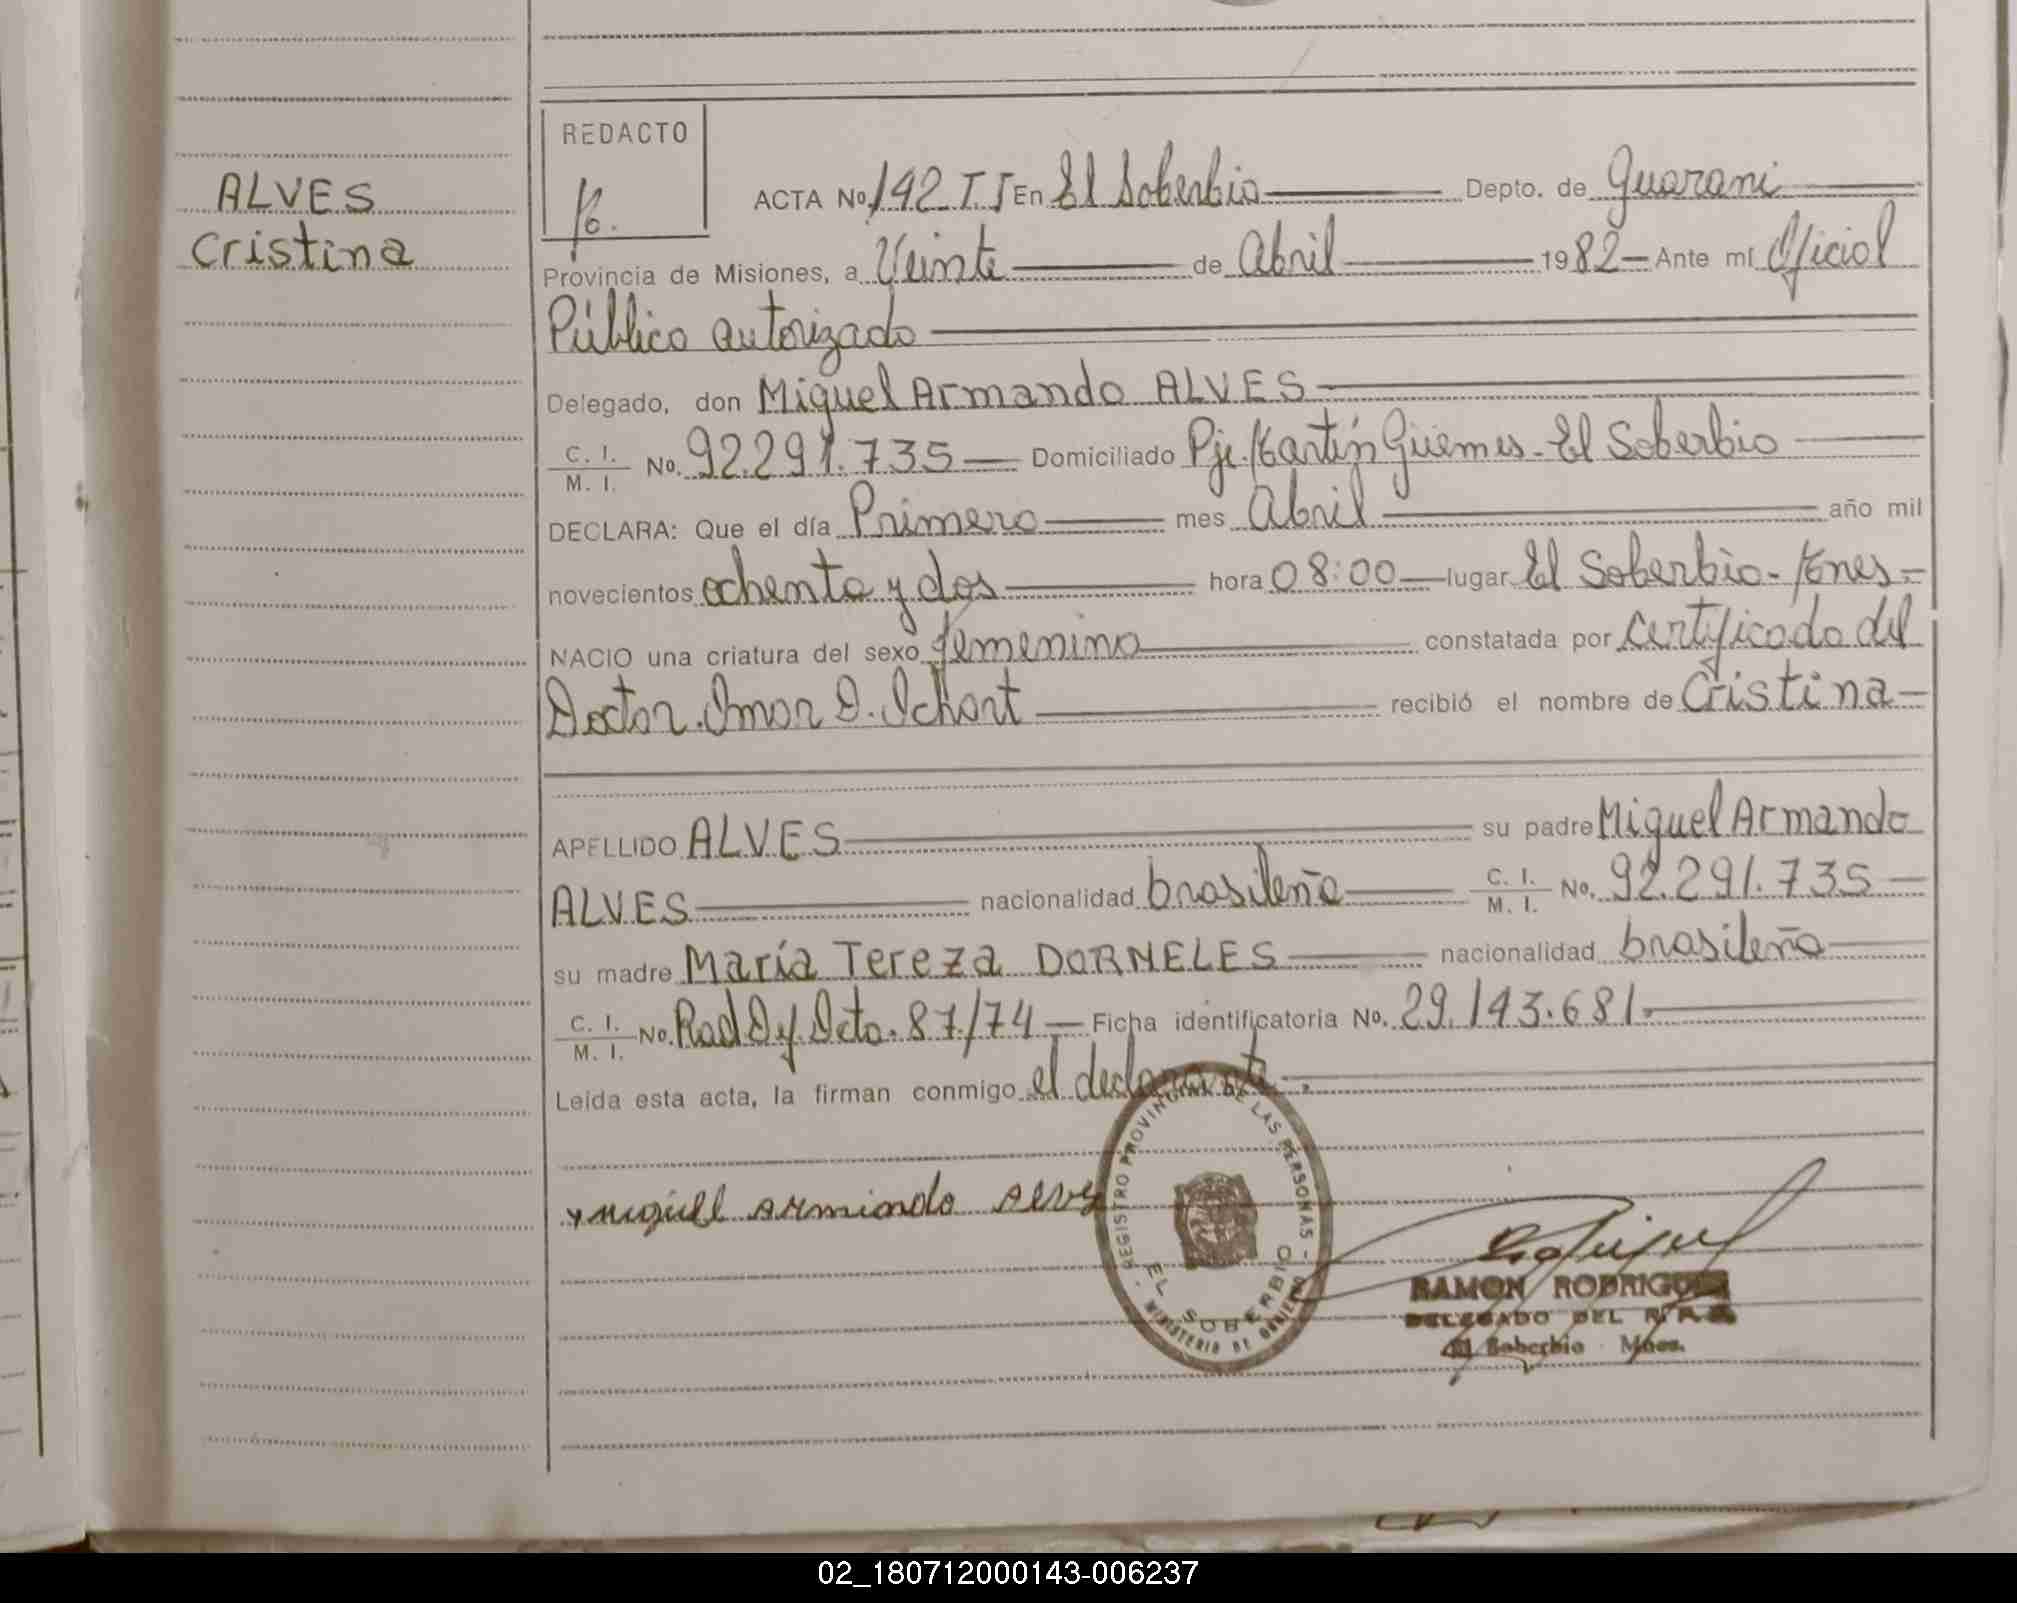 ALVES
Cristina
REDACTO
ACTA No 142 T.I En El Soberbio Depto. de Guarani
Provincia de Misiones, a Veinte de Abril 1982 Ante mí Oficial
Público autorizado
Delegado, don Miguel Armando ALVES
C. I. M. I. No. 92.291.735 Domiciliado Pje. Martín Güemes - El Soberbio
DECLARA: Que el día Primero mes Abril año mil
novecientos ochenta y dos hora 08:00 lugar El Soberbio - Mnes -
NACIO una criatura del sexo femenino constatada por Certificado del
Doctor. Omar D. Ichart recibió el nombre de Cristina
APELLIDO ALVES su padre Miguel Armando
ALVES nacionalidad brasileña C. I. M. I. No. 92.291.735
su madre María Tereza DORNELES nacionalidad brasileña
C. I. M. I. No. Rad Of Dcto. 87/74 Ficha identificatoria No. 29.143.681
Leída esta acta, la firman conmigo el declarante.
miguell armiando alves
REGISTRO PROVINCIAL DE LAS PERSONAS
EL SOBERBIO
MINISTERIO DE GOBIERNO
RAMON RODRIGUEZ
DELEGADO DEL R.P.P.
El Soberbio Mnes.
02_180712000143-006237